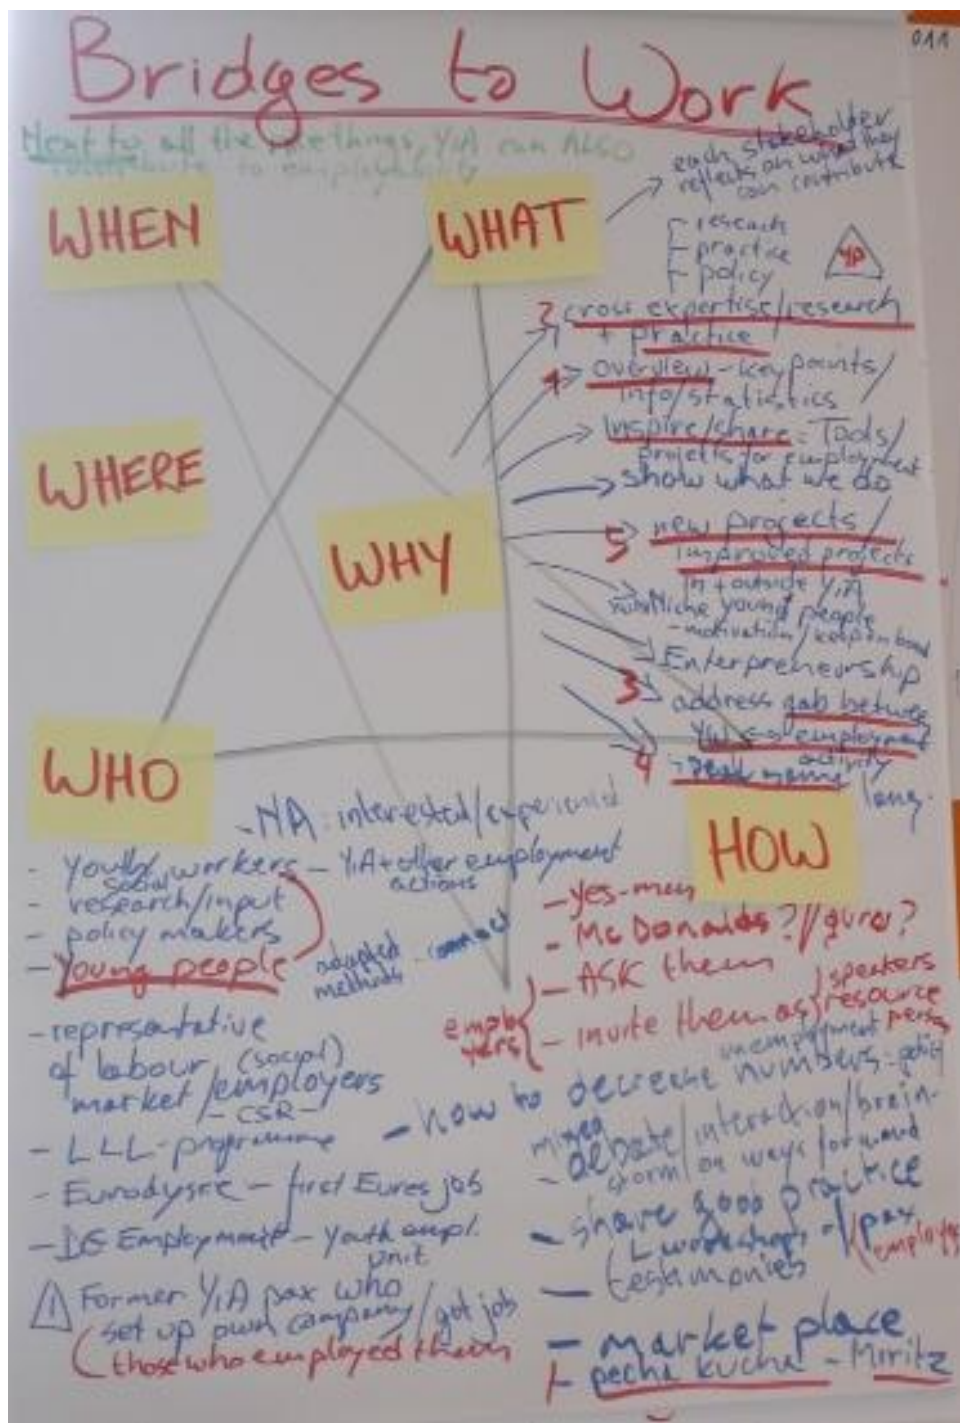 011
Bridges to Work
Next to all the nice things, YiA can ALSO
contribute to employability
WHEN
WHAT
each stakeholder
reflects on what they
can contribute
- research
- practice
- policy
YP
2 cross expertise/research
+ practice
1 overview - key points/
info/statistics
Inspire/share: Tools/
projects for employment
show what we do
WHERE
WHY
5 new projects/
improved projects
in + outside YiA
Niche young people
- motivation/keep on board
Enterpreneurship
3 address gab between
YW employment
activity
4
long.
WHO
HOW
- NA: interested/experienced
- Youth workers - YiA + other employment
social actions
- research/input
- policy makers
- Young people
adapted
methods - connect
- representative
of labour (social)
market/employers
- CSR -
- LLL-programme
- Eurodysee - first Eures job
- DG Employment - Youth empl.
unit
! Former YiA pax who
set up own company/got job
(those who employed them
- yes-men
- Mc Donalds?//guru?
employers
- ASK them
- invite them as speakers
resource
person
unemployment
- how to decrease numbers - policy
mixed
- debate/interaction/brain-
storm/on ways forward
- share good practice
workshops pax
(employers
- testimonies
- market place
- pecha kucha - Miritz